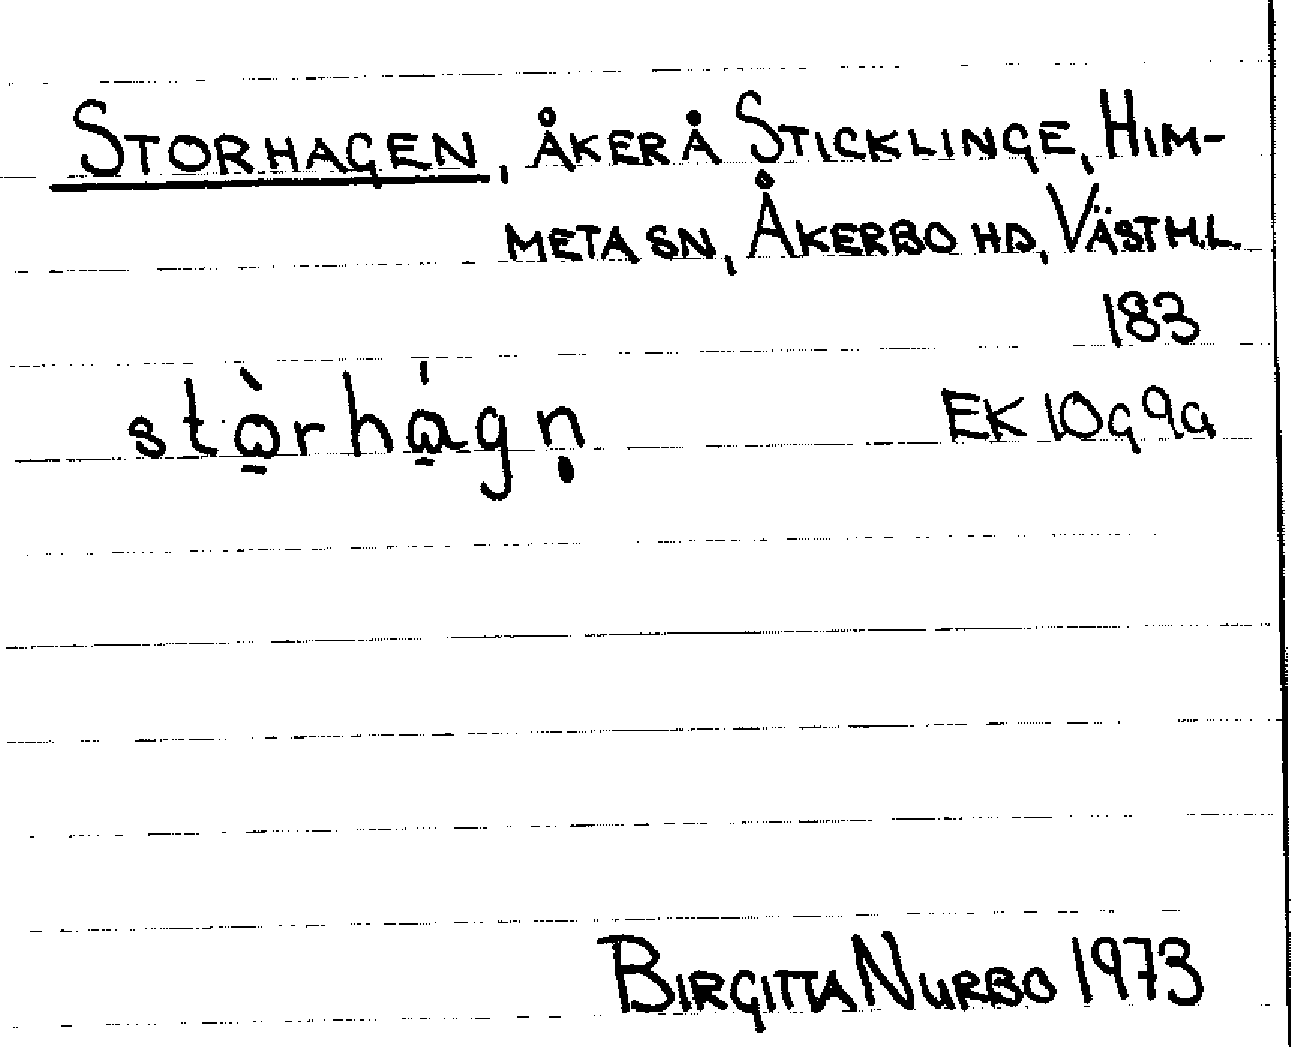 STORHAGEN, ÅKER Å STICKLINGE, HIM-
META SN, ÅKERBO HD, VÄSTM.L.
183
stò̱rhá̱gṇ
EK 10g 9a
BIRGITTA NURBO 1973